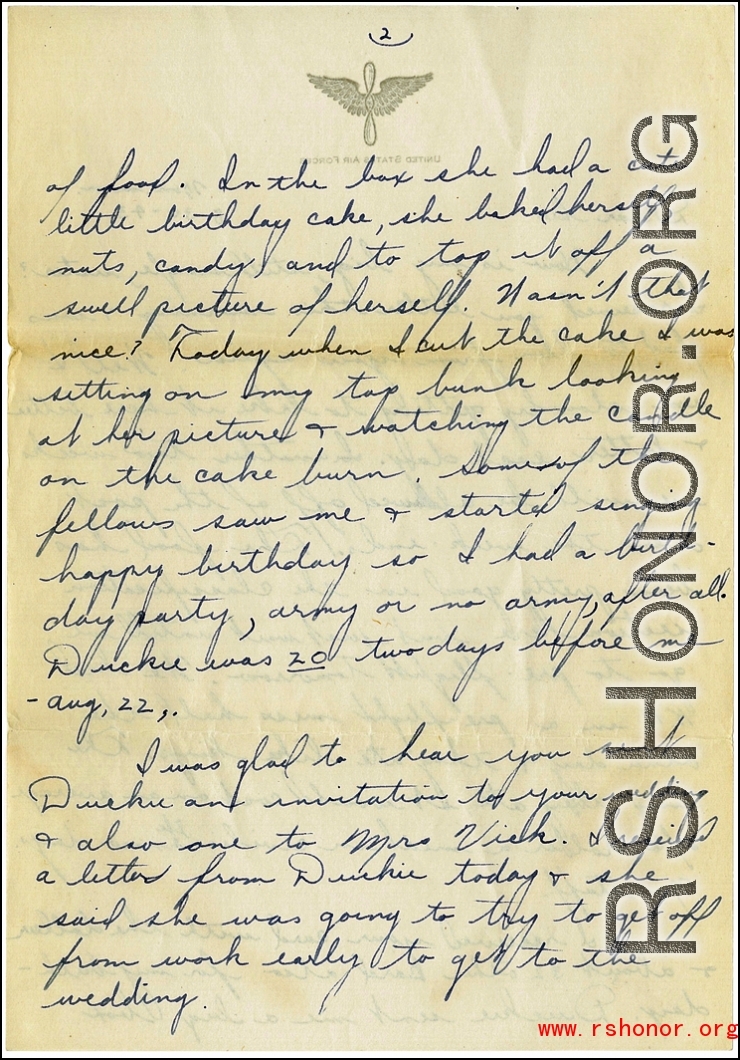 2
UNITED STATES AIR FORCE
of food. In the box she had a cut
little birthday cake, she baked herself
nuts, candy, and to top it off a
swell picture of herself. Wasn't that
nice? Today when I cut the cake I was
sitting on my top bunk looking
at her picture & watching the candle
on the cake burn. Some of the
fellows saw me & started singing
happy birthday so I had a birth-
day party, army or no army, after all.
Duckie was 20 two days before me
- Aug, 22,.
I was glad to hear you sent
Duckie an invitation to your wedding
& also one to Mrs Vick. I received
a letter from Duckie today & she
said she was going to try to get off
from work early to get to the
wedding.
RSHONOR.ORG
www.rshonor.org